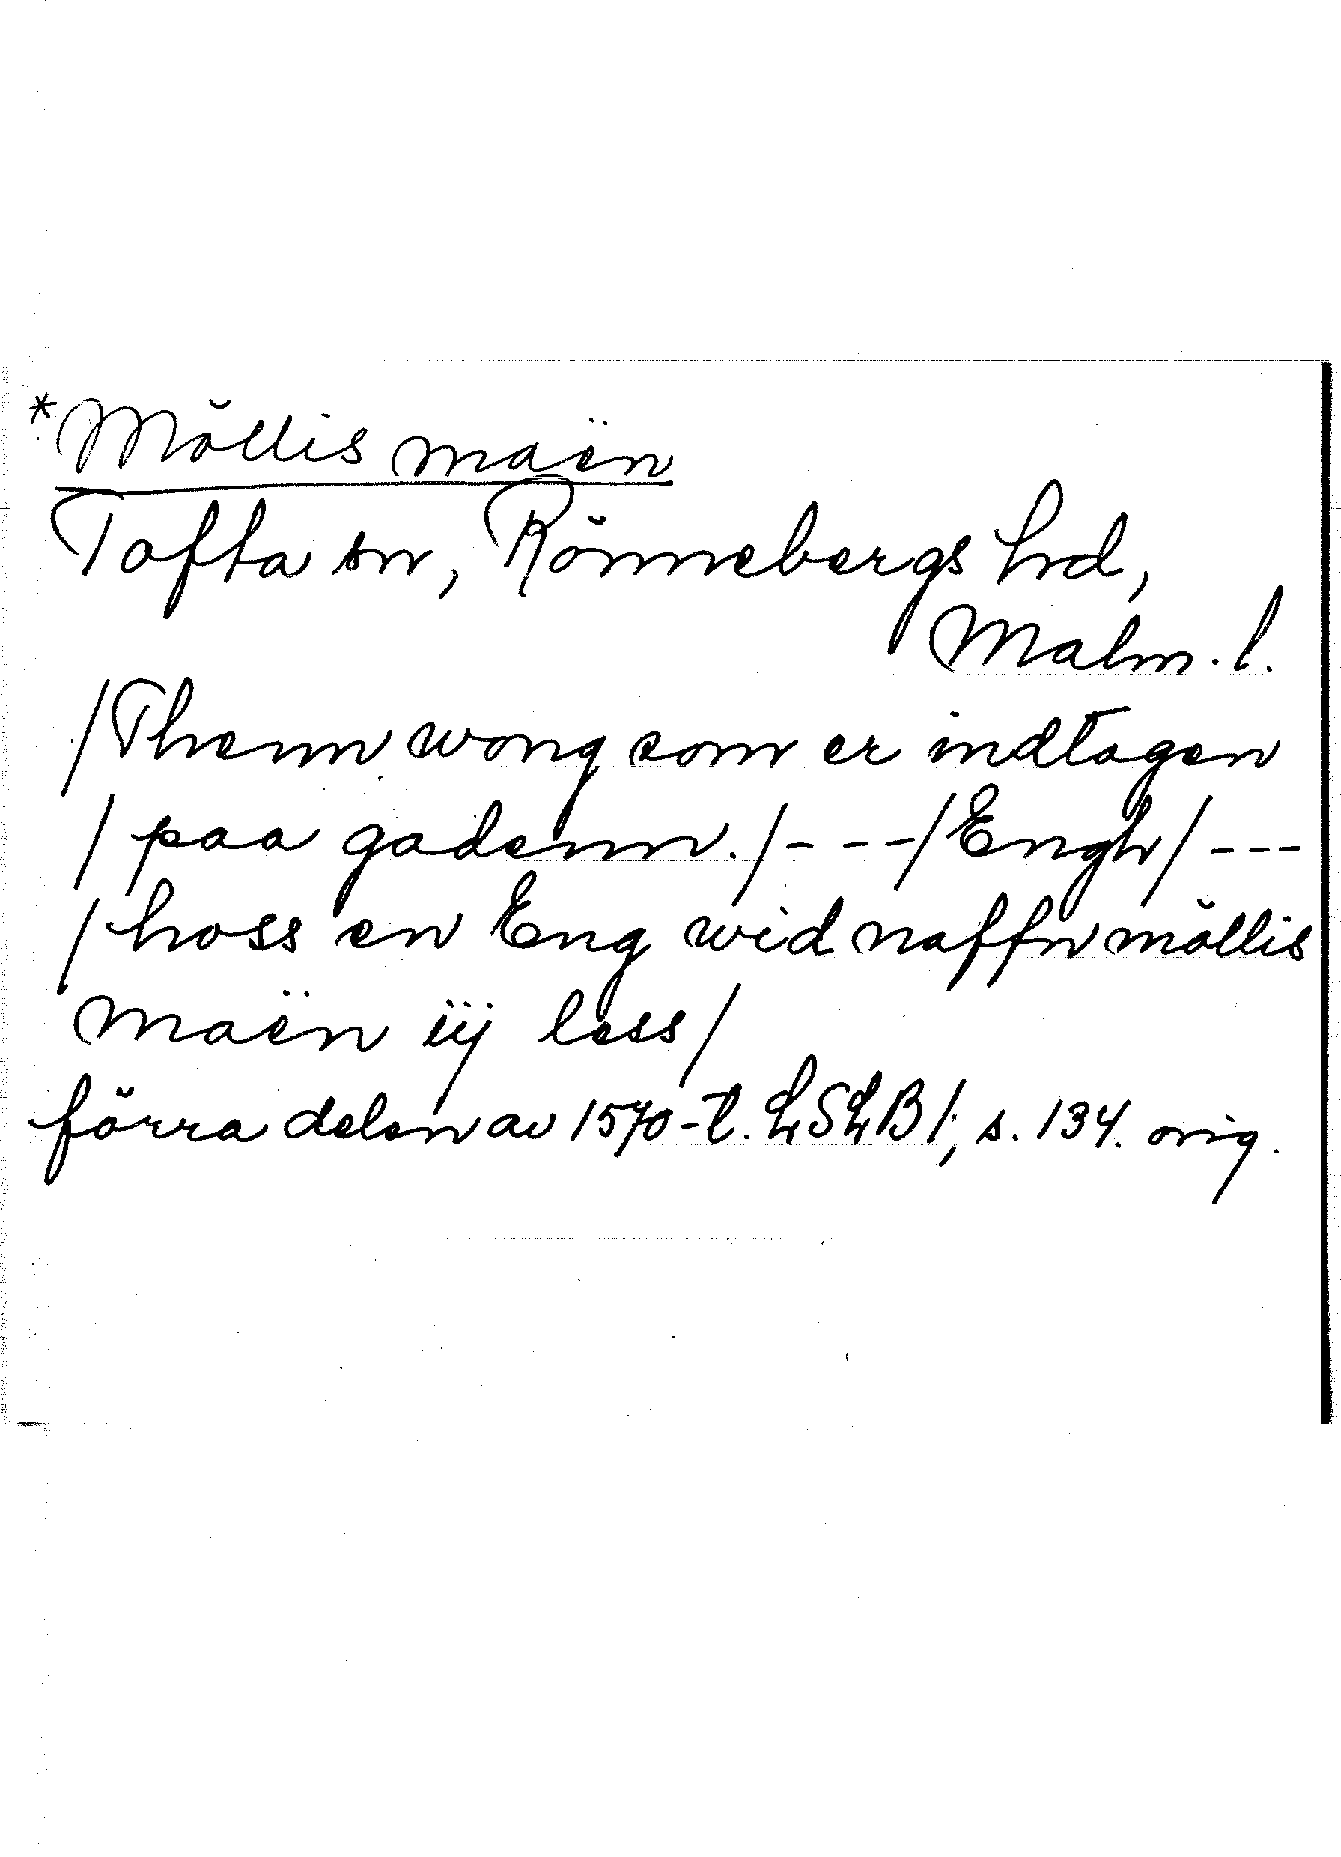 *Möllis maën
Tofta sn, Rönnebergs hd,
Malm. l.
/Thenn wong som er indtagen
/ paa gadenn./- - -/Engh/ ---
/ hoss en Eng wid naffn möllis
maën iij less/
förra delen av 1570-t. LSLB 1, s. 134. orig.